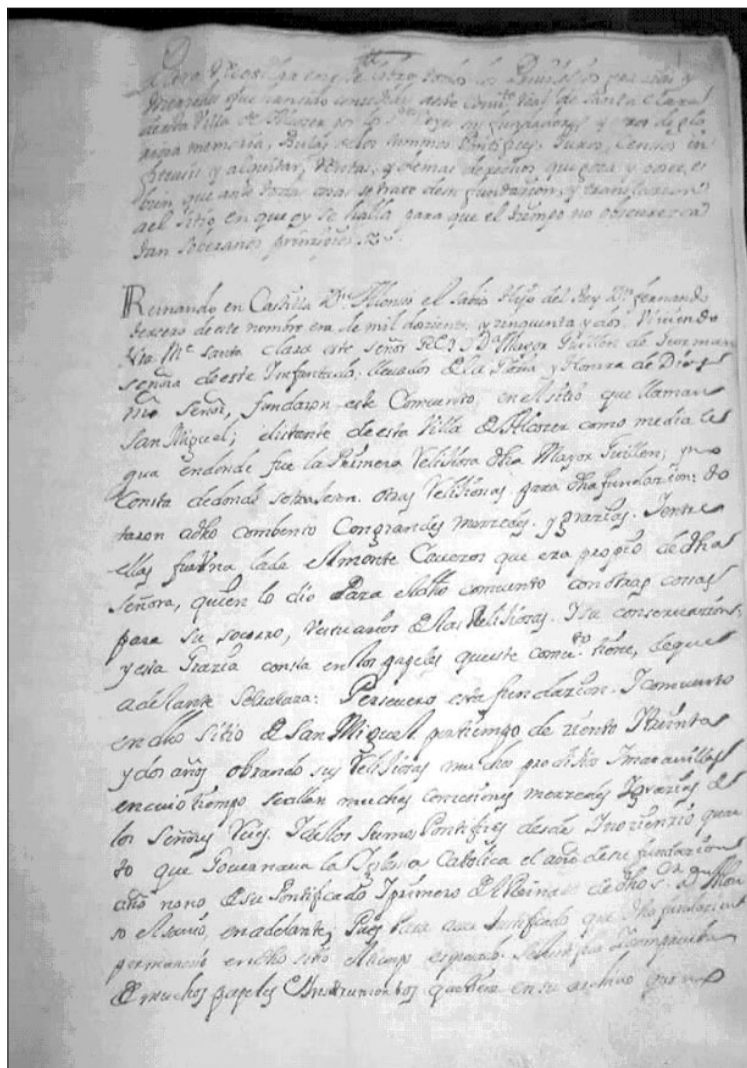 en este libro todos los Privilegios
mercedes que han sido concedidas a este Conv.to de Santa Clara
de esta Villa de Alcozer por los Reyes sus fundadores y de glo
riosa memoria, Bulas de los summos Pontifices, Juros, Censos
y alquitar, Ventas, y demas derechos que goza y posee, es
bien que ante todas cosas se trate de su fundazion, y translacion
del sitio en que oy se halla para que el tiempo no obscurezca
tan soberanos principios
Reinando en Castilla Dn Alonso el Sabio Hijo del Rey Dn fernando
tercero de este nombre era de mil dozientos y zinquenta y dos. Viviendo
Nra Me santa Clara este señor Da Mayor Guillen de Guzman
señora de este Infantado, llevados de la Gloria y Honrra de Dios
Nro Señor, fundaron este Comvento, en el sitio que llaman
San Miguel; distante de esta Villa de Alcozer como media le
gua endonde fue la Primera Relijiosa dha Mayor Guillen; y no
Consta de donde otras Relijiosas para dha fundazion: do
taron a dho combento Con grandes merzedes y grazias. Y entre
ellas fue Una la de el monte que era propio de dha
señora, quien lo dio Para el dho comvento con otras cosas
para su socorro, Vestuarios de las Relijiosas. Y su conservazion,
y esta Grazia consta en los papeles que este comv.to tiene, de que
adelante se tratara: Persevero esta fundazion. Y comvento
en dho sitio de San Miguel por tiempo de ziento treinta
y dos años obrando sus Relijiosas muchos prodijios Y maravillas
en cuio tiempo se allan muchas concesiones merzedes Y grazias de
los Señores Reies. Y de los Sumos Pontifizes desde Ynozenzio quar
to que Governava la Yglesia Catolica el año de su fundazion
año nono de su Pontificado Y primero del Reinado de dho S.r Dn Alon
so el Savio, en adelante; Pues Para aver justificado que dha fundazion
permanezio en dho sitio el tiempo expresado
de muchos papeles e Ynstrumentos que tiene en su archivo